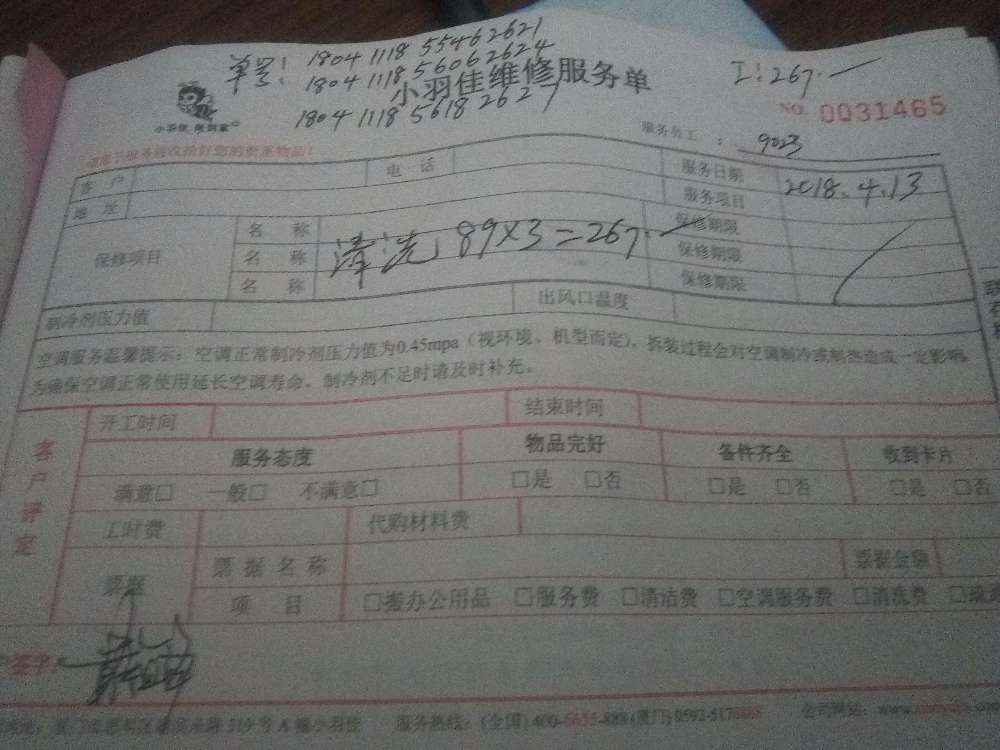 单号: 1804 1118 55462621
1804 1118 56062624
1804 1118 56182627
I:267.一
小羽佳维修服务单
NO. 0031465
小羽佳
服务员工: 9023
客户 电话 服务日期 2018.4.13
地址 服务项目
保修项目 名称 清洗 89×3=267.一 保修期限
名称 保修期限
名称 保修期限
制冷剂压力值 出风口温度
空调服务温馨提示:空调正常制冷剂压力值为0.45mpa(视环境、机型而定)。拆装过程会对空调制冷或制热造成一定影响,
为确保空调正常使用延长空调寿命,制冷剂不足时请及时补充。
客户评定
开工时间 结束时间
服务态度 物品完好 备件齐全 收到卡片
满意□ 一般□ 不满意□ □是 □否 □是 □否 □是 □否
工时费 代购材料费
票据 票据名称 票据金额
项目 □搬办公用品 □服务费 □清洁费 □空调服务费 □清洗费
签字:
319号A幢小羽佳 服务热线:(全国)400-6655-888(厦门)0592-5176868 公司网站:www.